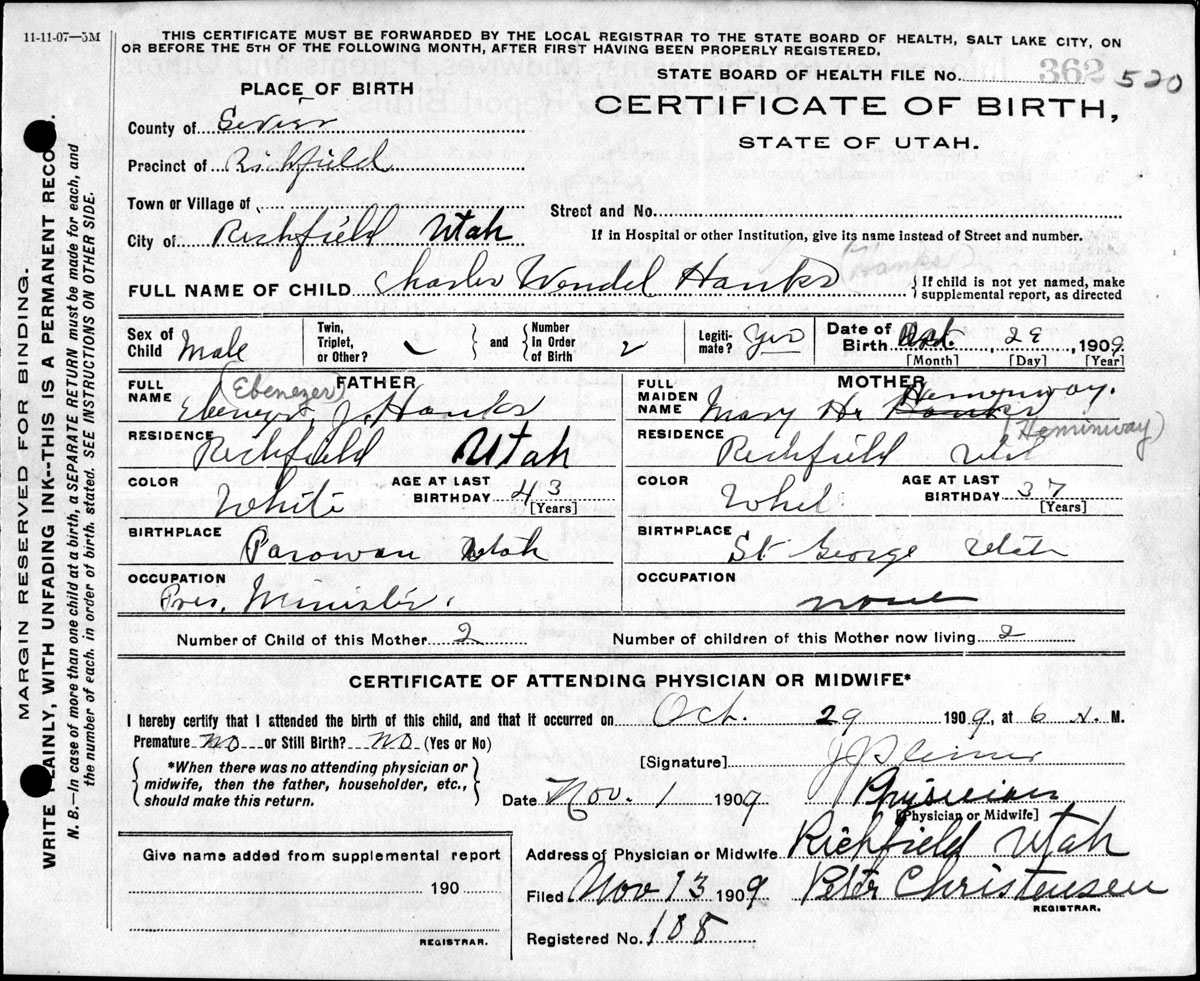 11-11-07—5M
THIS CERTIFICATE MUST BE FORWARDED BY THE LOCAL REGISTRAR TO THE STATE BOARD OF HEALTH, SALT LAKE CITY, ON
OR BEFORE THE 5TH OF THE FOLLOWING MONTH, AFTER FIRST HAVING BEEN PROPERLY REGISTERED.
STATE BOARD OF HEALTH FILE No. 362 520
PLACE OF BIRTH
CERTIFICATE OF BIRTH,
STATE OF UTAH.
County of Sevier
Precinct of Richfield
Town or Village of
Street and No.
City of Richfield Utah
If in Hospital or other Institution, give its name instead of Street and number.
(Hanks)
FULL NAME OF CHILD Charles Wendel Hanks { If child is not yet named, make
supplemental report, as directed
Sex of Child Male
Twin, Triplet, or Other?
and { Number in Order of Birth 2
Legiti-mate? Yes
Date of Birth Oct. 29, 1909
[Month] [Day] [Year]
FATHER
FULL NAME (Ebenezer)
Ebenezer J. Hanks
MOTHER
FULL MAIDEN NAME Mary Hemenway.
Hanks
(Heminway)
RESIDENCE Richfield Utah
RESIDENCE Richfield
COLOR White
AGE AT LAST BIRTHDAY 43 [Years]
COLOR
AGE AT LAST BIRTHDAY 37 [Years]
BIRTHPLACE Parowan Utah
BIRTHPLACE St George Utah
OCCUPATION
Minister.
OCCUPATION
none
Number of Child of this Mother 2
Number of children of this Mother now living 2
CERTIFICATE OF ATTENDING PHYSICIAN OR MIDWIFE*
I hereby certify that I attended the birth of this child, and that it occurred on Oct. 29 1909, at 6 M.
Premature No or Still Birth? No (Yes or No)
[Signature]
{ *When there was no attending physician or
midwife, then the father, householder, etc.,
should make this return. }
Date Nov. 1 1909
Physician
[Physician or Midwife]
Give name added from supplemental report
190
REGISTRAR.
Address of Physician or Midwife Richfield Utah
Filed Nov 13 1909 Peter Christensen
REGISTRAR.
Registered No. 188
MARGIN RESERVED FOR BINDING.
WRITE PLAINLY, WITH UNFADING INK--THIS IS A PERMANENT RECORD.
N. B.—In case of more than one child at a birth, a SEPARATE RETURN must be made for each, and
the number of each, in order of birth, stated. SEE INSTRUCTIONS ON OTHER SIDE.